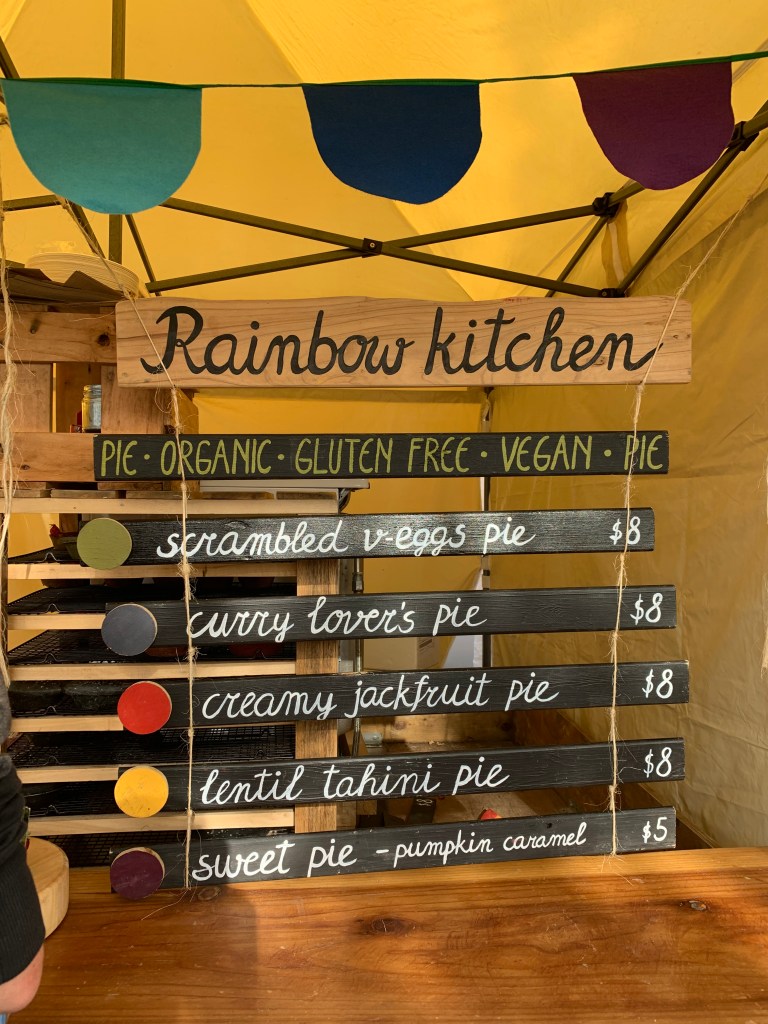 Rainbow kitchen
PIE · ORGANIC · GLUTEN FREE · VEGAN · PIE
scrambled v-eggs pie $8
curry lover's pie $8
creamy jackfruit pie $8
lentil tahini pie $8
sweet pie - pumpkin caramel $5